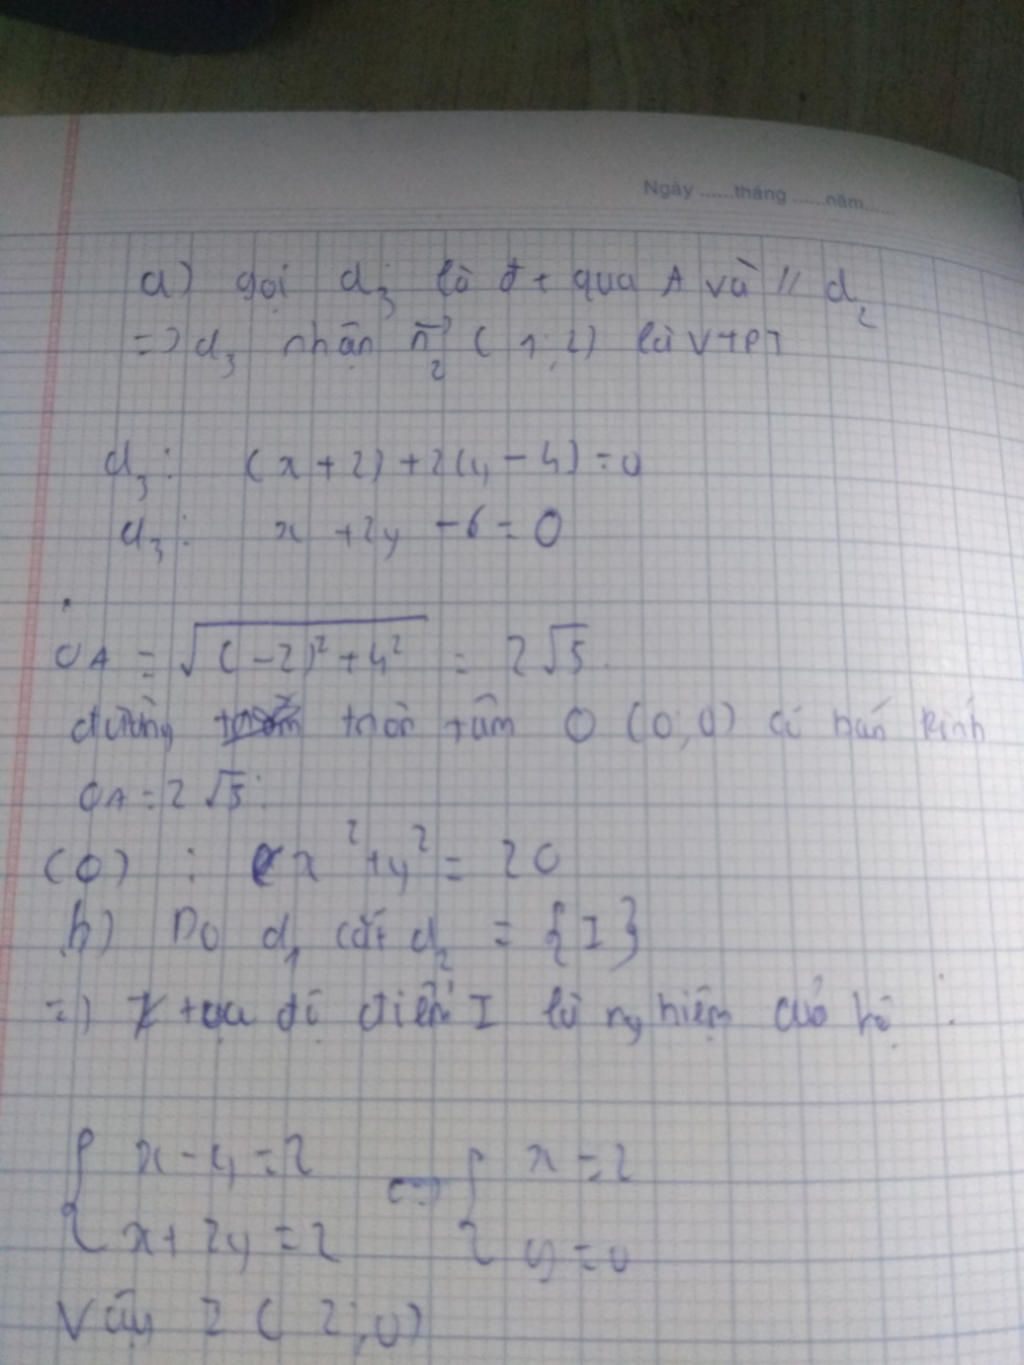 Ngày ......tháng ......năm......
a) gọi d₃ là đt qua A và // d₂
=> d₃ nhận n₂ (1; 2) là VTPT
d₃: (x + 2) + 2(y - 4) = 0
d₃: x + 2y - 6 = 0
OA = √((-2)² + 4²) = 2√5
đường tròn tâm O (0; 0) có bán kính
OA = 2√5:
(O) : x² + y² = 20
b) Do d₁ cắt d₂ = {I}
=> tọa độ điểm I là nghiệm của hệ :
{ x - y = 2 <=> { x = 2
x + 2y = 2 y = 0
Vậy I (2; 0)